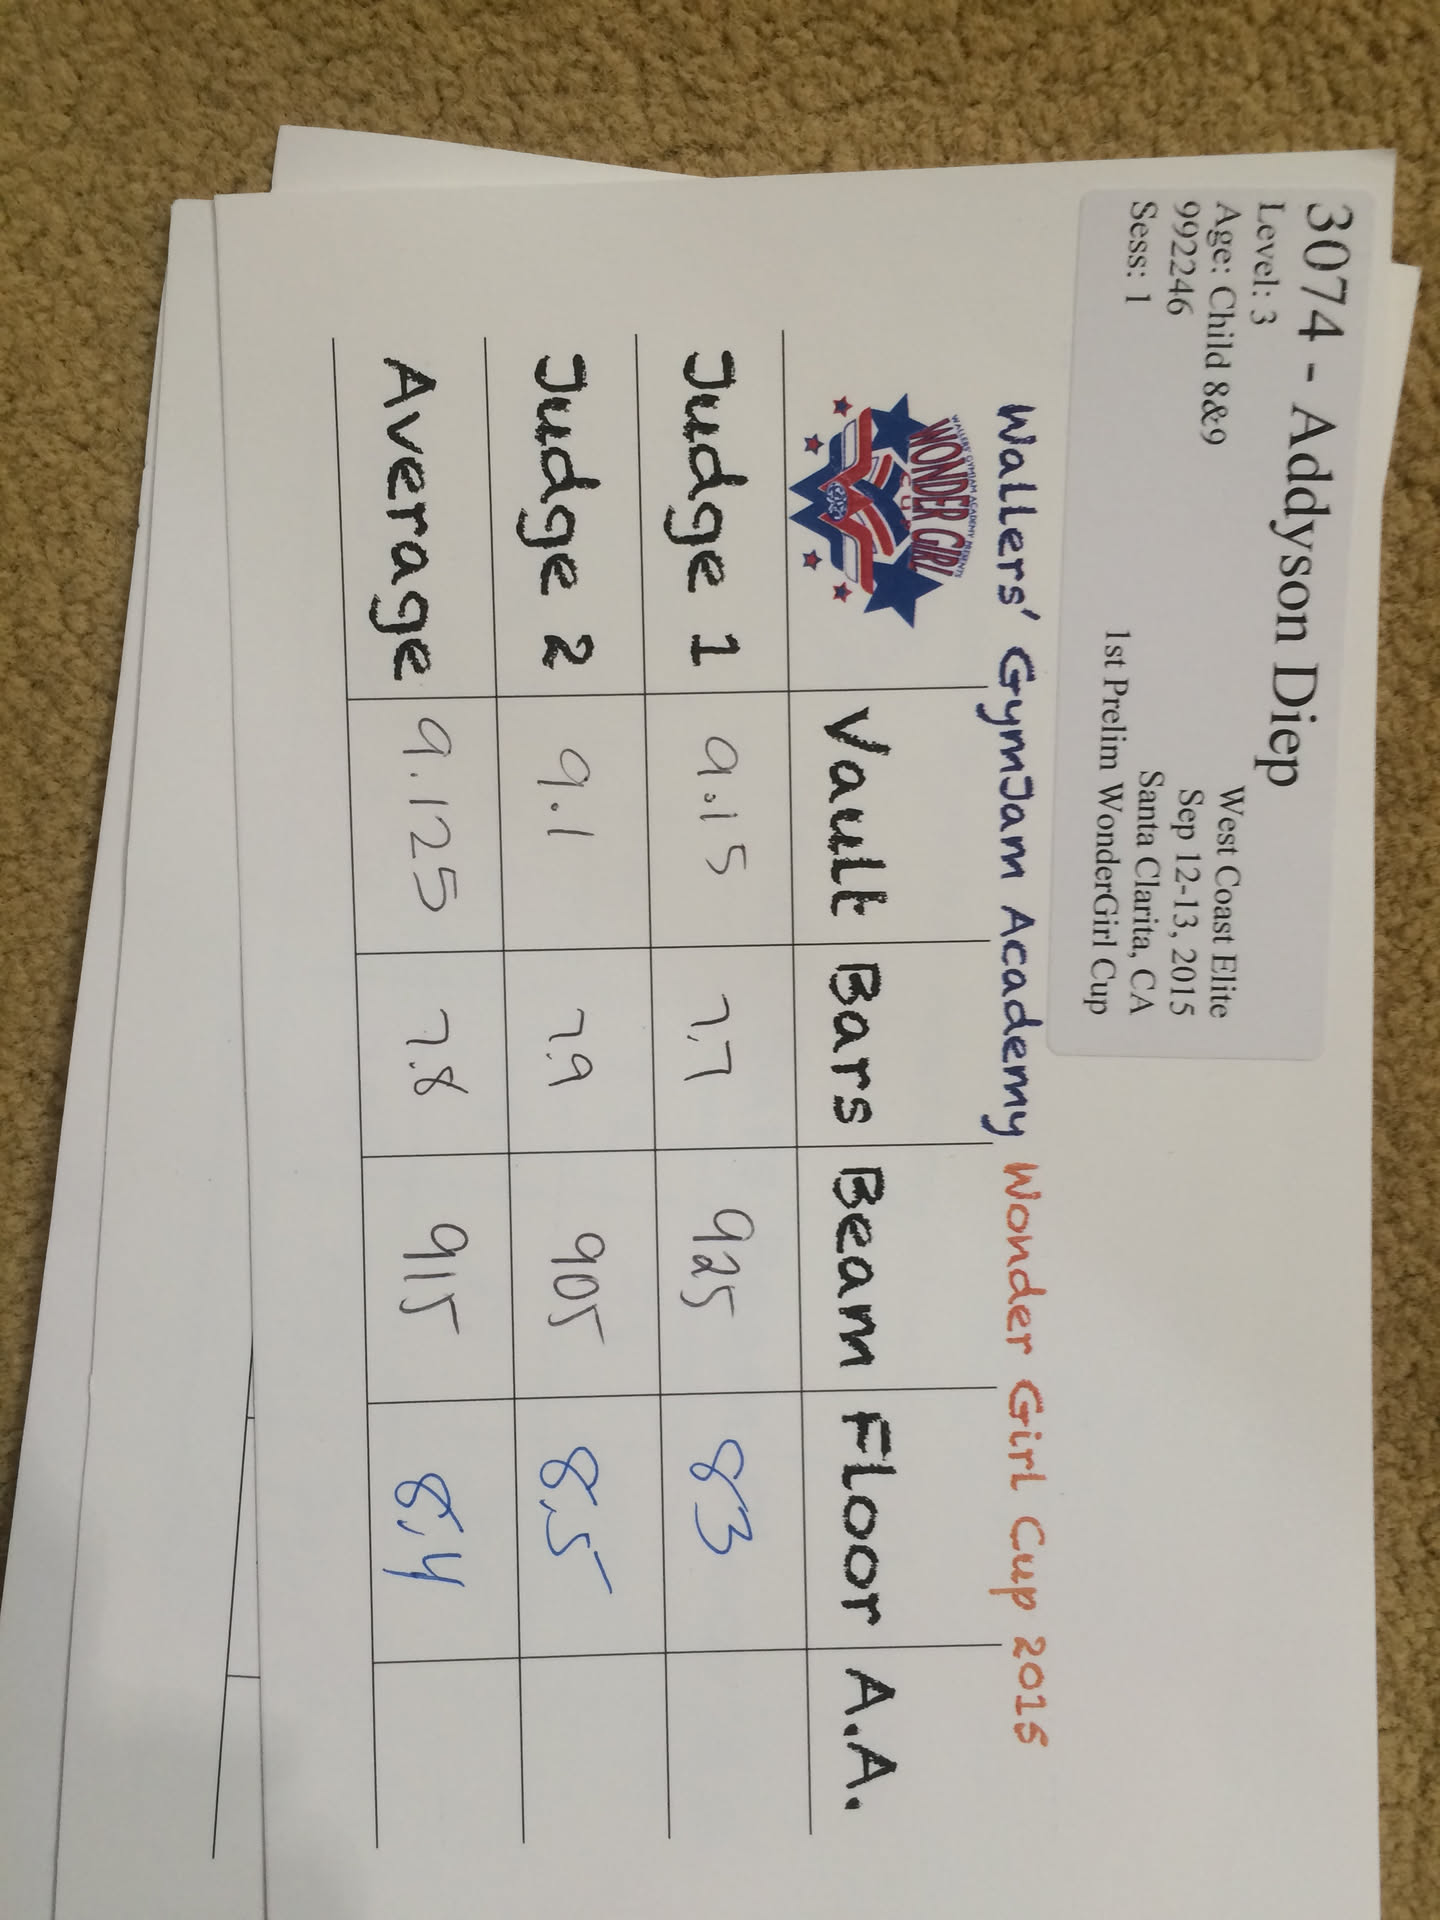 3074 - Addyson Diep
Level: 3
Age: Child 8&9
992246
Sess: 1
West Coast Elite
Sep 12-13, 2015
Santa Clarita, CA
1st Prelim WonderGirl Cup
Wallers' GymJam Academy Wonder Girl Cup 2015
WALLERS' GYMJAM ACADEMY PRESENTS
WONDER GIRL
CUP
Vault Bars Beam Floor A.A.
Judge 1 9.15 7.7 925 83
Judge 2 9.1 7.9 905 8.5
Average 9.125 7.8 915 8.4